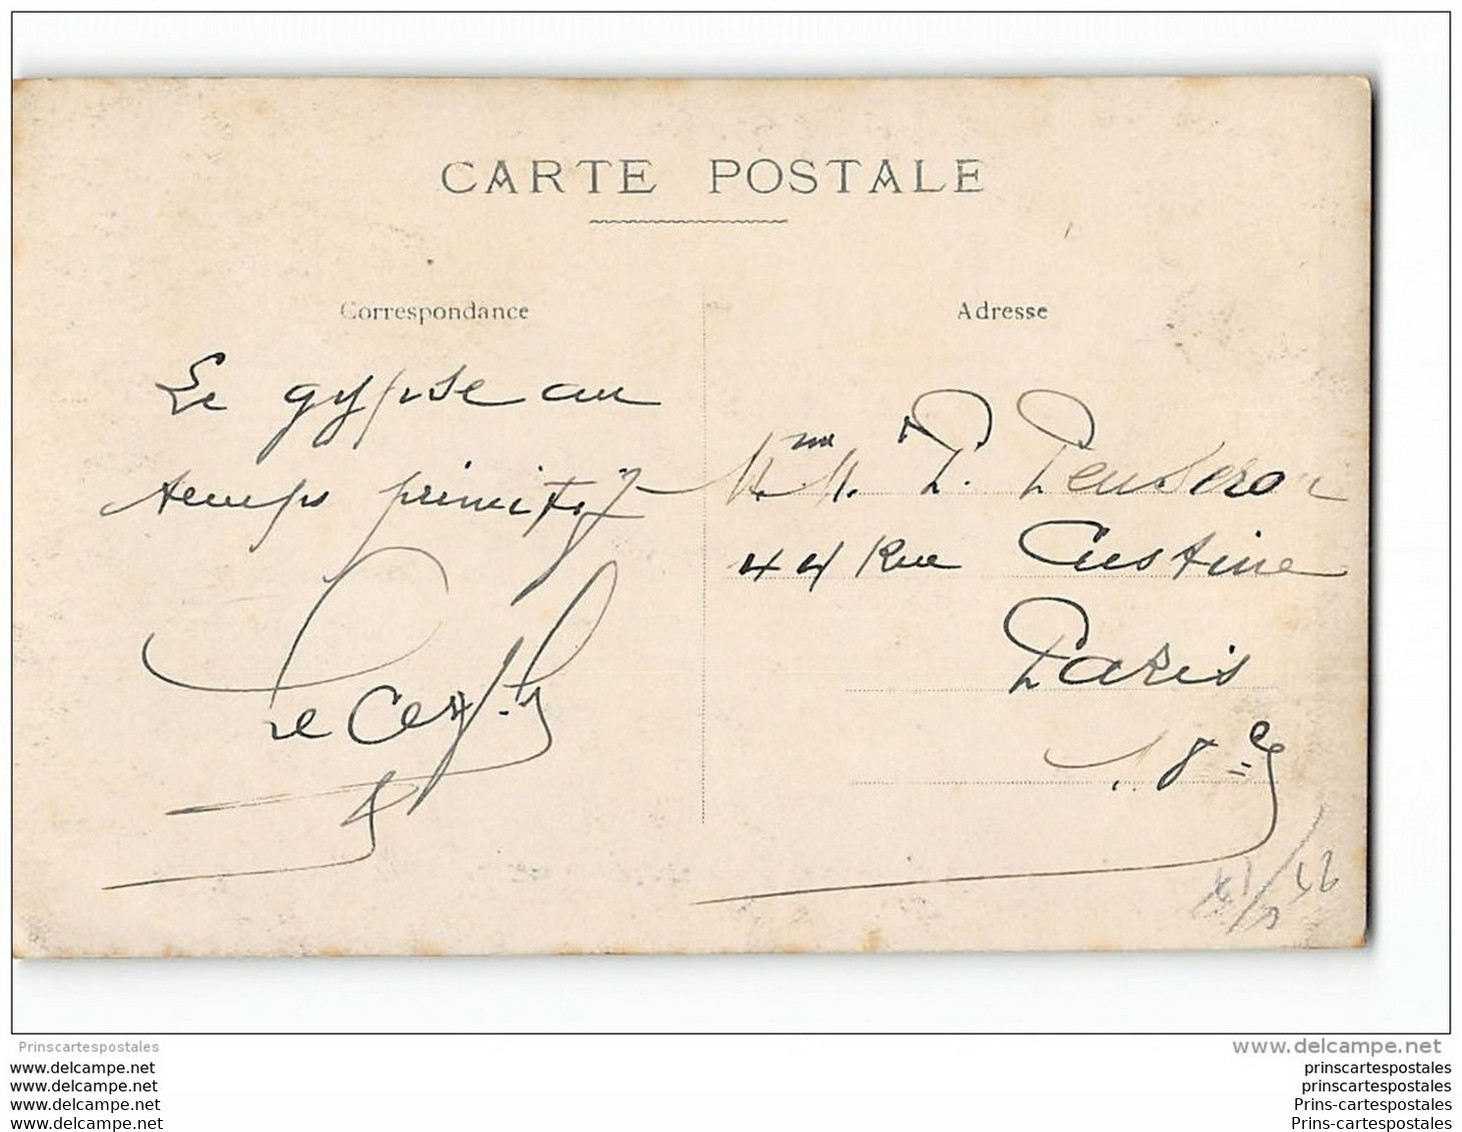 CARTE POSTALE
Correspondance
Le gypse au
temps primitif
Adresse
44 Rue Custine
Paris
18e
Prinscartespostales
www.delcampe.net
www.delcampe.net
www.delcampe.net
www.delcampe.net
www.delcampe.net
prinscartespostales
prinscartespostales
Prins-cartespostales
Prins-cartespostales